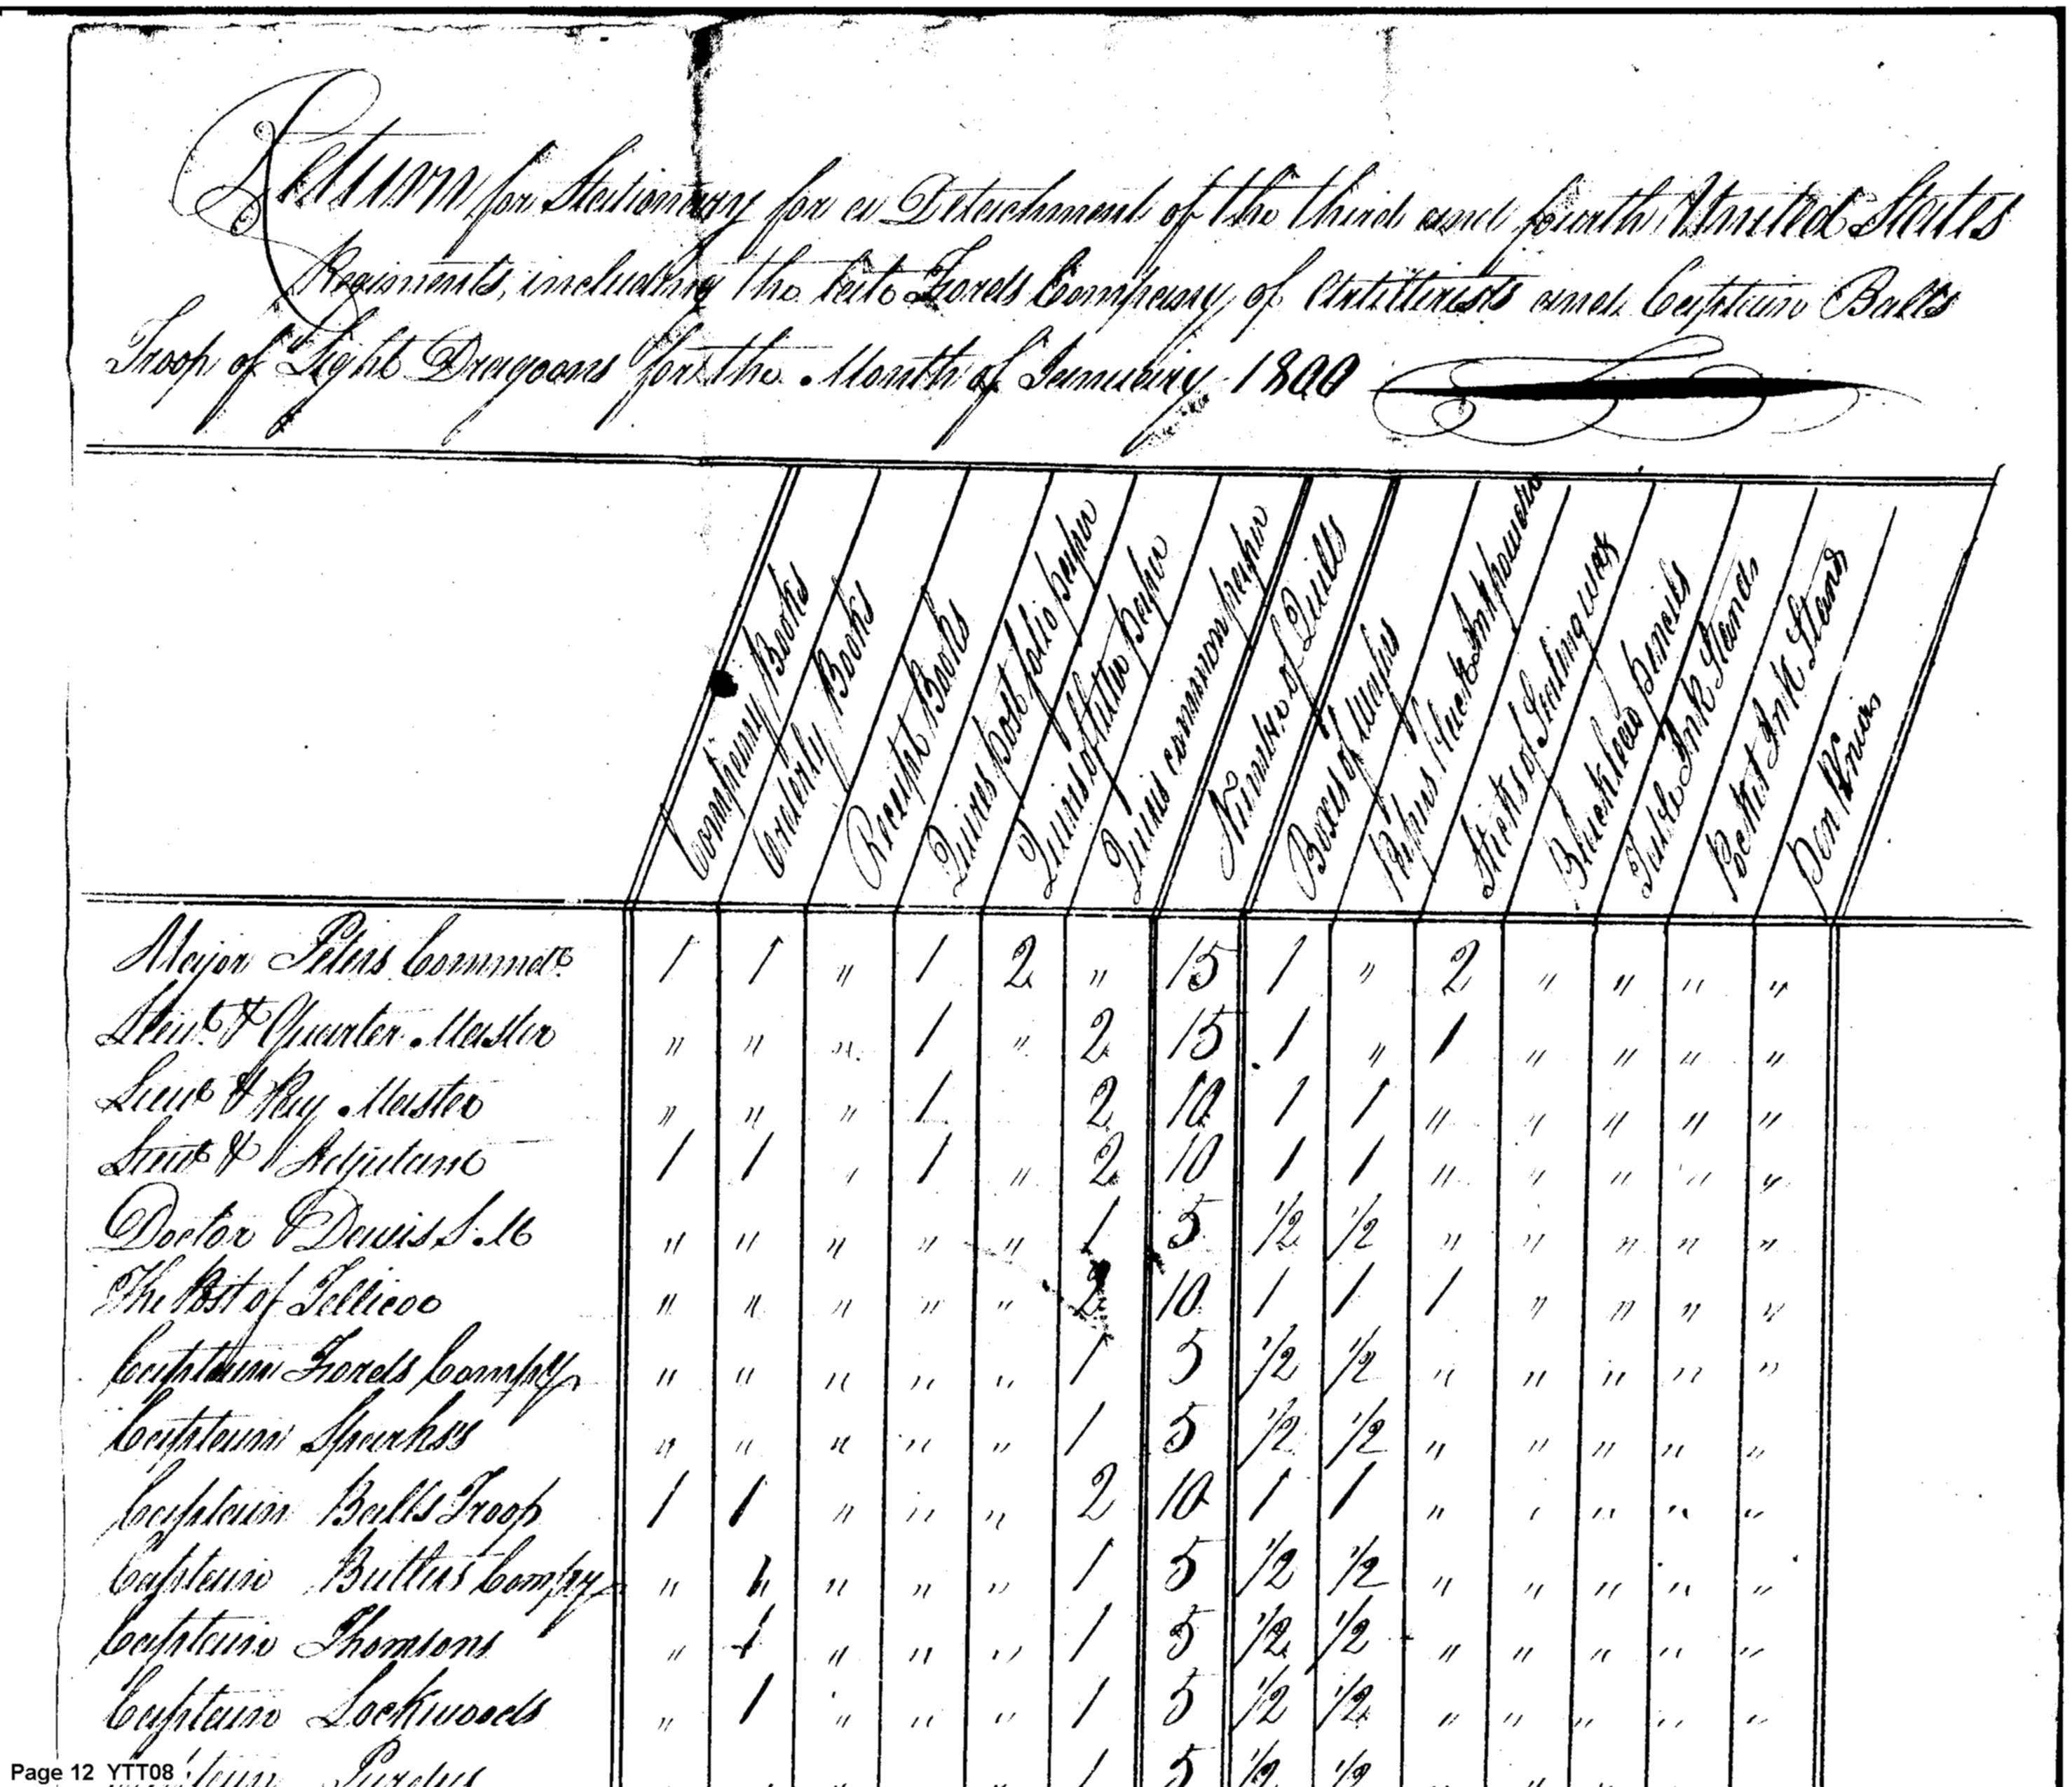 Return for Stationary for a Detachment of the third and fourth United States
Regiments, including the late Fords Company of Artillirists and Captain Balls
Troop of Light Dragoons for the Month of January 1800
Company Books
Orderly Books
Receipt Books
Quires post folio paper
Quires of letter paper
Quires common paper
Number of Quills
Boxes of Wafers
Papers black Inkpowder
Sticks of Sealing wax
Blacklead pencils
Table Ink Stand
Pocket Ink Stand
Pen Knives
Major Peters Commdt. 1 1 " 1 2 " 15 1 " 2 " " " "
Lieut. & Quarter Master " " " 1 " 2 15 1 " 1 " " " "
Lieut & Pay Master " " " 1 2 10 1 1 " " " " "
Lieut & Adjutant 1 1 " 1 " 2 10 1 1 " " " " "
Doctor Davis S. M " " " " " 1 5 1/2 1/2 " " " " "
The Post of Tellicoo " " " " " 2 10 1 1 1 " " " "
Captain Fords Compy " " " " " 1 5 1/2 1/2 " " " " "
Captain Sparks's " " " " " 1 5 1/2 1/2 " " " " "
Captain Balls Troop 1 1 " " " 2 10 1 1 " " " " "
Captain Butlers Compy " 1 " " " 1 5 1/2 1/2 " " " " "
Captain Thomsons " 1 " " " 1 5 1/2 1/2 " " " " "
Captain Lockwoods " 1 " " " 1 5 1/2 1/2 " " " " "
Purdys 1 5 1/2 1/2
Page 12 YTT08